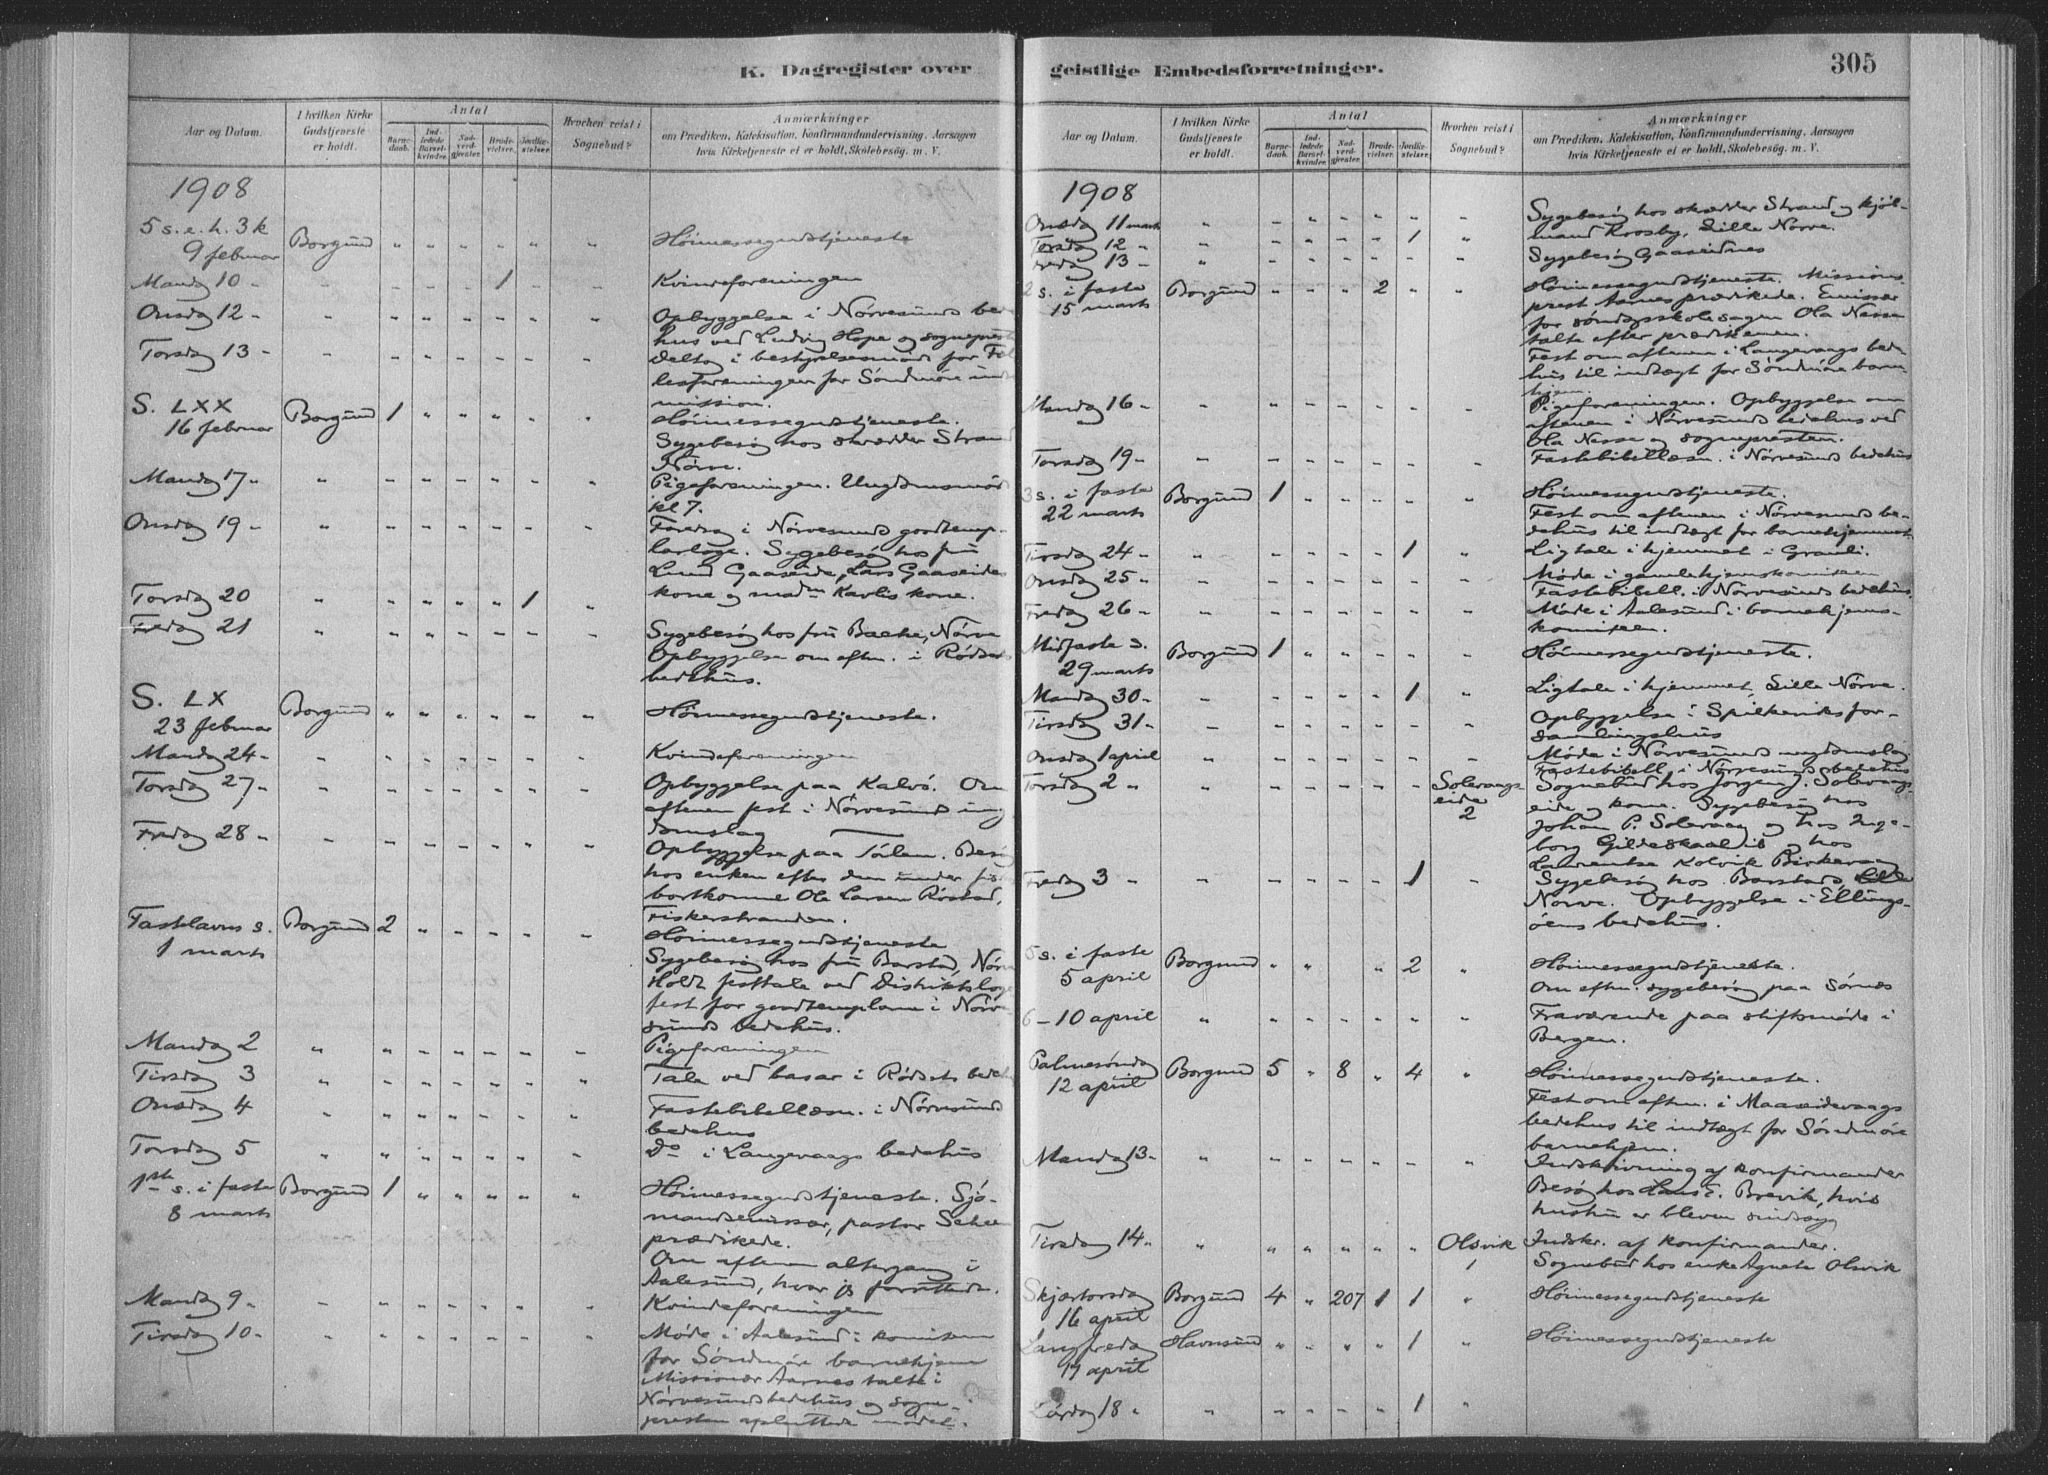 K. Dagregister over
Aar og Datum.
I hvilken Kirke Gudstjeneste er holdt.
Antal
Barnedaab.
Indledede Barselkvinder.
Nadverdgjester.
Brudevielser.
Jordfæstelser.
Hvorhen reist i Sognebud?
Anmærkninger
om Prædiken, Katekisation, Konfirmandundervisning, Aarsagen
hvis Kirketjeneste ei er holdt, Skolebesøg. m. V.
1908
5 s. e. h. 3 k
9 februar Borgund " " " " " " Høimessegudstjeneste
Mandag 10 " - - - - 1 - - Kvindeforeningen
Onsdag 12 - Opbyggelse i Nørvesund bede
hus ved Ludvig Hope og sogneprest
Torsdag 13 - Deltog i bestyrelsesmøde for Fæl
lesforeningen for Søndmøre indre
mission.
S. LXX
16 februar Borgund 1 " " " " " Høimessegudstjeneste.
Sygebesøg hos skrædder Strand
Nørve.
Mandag 17 " Pigeforeningen. Ungdomsmøde
kl 7.
Onsdag 19 - Foredrag i Nørvesund goodtemp-
larloge. Sygebesøg hos fru
Lund Gaaseide, Lars Gaaseides
kone og madm Kavlis kone.
Torsdag 20 " " " " " 1 "
Fredag 21 Sygebesøg hos fru Backe, Nørve
Opbyggelse om eftm. i Rødsets
bedehus.
S. LX
23 februar Borgund " " " " " " Høimessegudstjeneste.
Mandag 24 - Kvindeforeningen
Torsdag 27 " Opbyggelse paa Kalvø. Om
aftenen fest i Nørvesund ung
domslag
Fredag 28 - Opbyggelse paa Tølem. Besøg
hos enken efter den under fi
bortkomne Ola Larsen Røstad,
Fiskerstranden.
Fastelavns s.
1 marts Borgund 2 " " " " " Høimessegudstjeneste
Sygebesøg hos fru Barstad, Nørve
Holdt festtale ved Distriktsloge
fest for goodtemplarne i Nørve
sunds bedehus.
Mandag 2 Pigeforeningen
Tirsdag 3 Tale ved basar i Rødsets bedehus
Onsdag 4 Fastebibellæsn. i Nørvesund
bedehus
Torsdag 5 Do i Langevaags bedehus
1ste s. i faste
8 marts Borgund 1 " " " " " Høimessegudstjeneste. Sjø-
mandsemissær, pastor
prædikede.
Om aftenen altergang i
Aalesund, hvor jeg forrettede.
Mandag 9 " Kvindeforeningen
Tirsdag 10 - Møde i Aalesund i komiteen
for Søndmøre barnehjem
Missionær Aarnes talte i
Nørvesund bedehus og sogne-
presten afsluttede mødet.
geistlige Embedsforretninger.
305
Aar og Datum.
I hvilken Kirke Gudstjeneste er holdt.
Antal
Barnedaab.
Indledede Barselkvinder.
Nadverdgjester.
Brudevielser.
Jordfæstelser.
Hvorhen reist i Sognebud?
Anmærkninger
om Prædiken, Katekisation, Konfirmandundervisning, Aarsagen
hvis Kirketjeneste ei er holdt, Skolebesøg. m. V.
1908
Onsdag 11 marts Sygebesøg hos skrædder Strand og kjøb-
mand Krosby, Lille Nørve.
Torsdag 12 " " - - - - 1 "
Fredag 13 - Sygebesøg Gaaseidnes
2 s. i faste
15 marts Borgund " " " 2 " " Høimessegudstjeneste. Missions
prest Aarnes prædikede. Emissær
for søndagsskolesagen Ola Nesse
talte efter prædikenen.
Fest om aftenen i Langevaags bede
hus til indtægt for Søndmøre barne
hjem.
Mandag 16 - Pigeforeningen. Opbyggelse om
aftenen i Nørvesund bedehus ved
Ola Nesse og sognepresten.
Torsdag 19 - Fastebibellæsn. i Nørvesund bedehus
3 s. i faste
22 marts Borgund 1 " - - - " Høimessegudstjeneste.
Fest om aftenen i Nørvesund be-
dehus til indtægt for barnehjemmet.
Tirsdag 24 - " - - - - 1 " Ligtale i hjemmet i Grauli.
Onsdag 25 - Møde i gamlehjemskomiteen
Fastebibell. i Nørvesund bedehus
Fredag 26 - Møde i Aalesund i barnehjems-
komiteen.
Midfaste s.
29 marts Borgund 1 " " - - " Høimessegudstjeneste.
Mandag 30 - " - - - - 1 " Ligtale i hjemmet, Lille Nørve.
Tirsdag 31 - Opbyggelse i Spilkeviks for-
samlingshus
Onsdag 1 april Møde i Nørvesund ungdomslag
Fastebibell. i Nørvesund bedehus
Torsdag 2 " Solevaags-
eide
2
Sognebud hos Jørgen J. Solevaags-
eide og kone. Sygebesøg hos
Johan P. Solevaag og hos Inge-
borg Gildeskaal is og hos
Laurentse Kolvik Birkevaag
Fredag 3 - - - - - - 1 - Sygebesøg hos Barstads Lille
Nørve. Opbyggelse i Ellings-
øens bedehus.
5 s. i faste
5 april Borgund " " " 2 " Høimessegudstjeneste.
Om eftm. sygebesøg paa Sørnes
6 - 10 april Fraværende paa stiftsmøde i
Bergen.
Palmesøndag
12 april Borgund 5 " 8 " 4 " Høimessegudstjeneste.
Fest om eftm. i Maaseidevaags
bedehus til indtægt for Søndmøre
barnehjem.
Mandag 13 - Indskrivning af konfirmander
Besøg hos Lars E. Brevik, hvis
hustru er bleven sindssyg
Tirsdag 14 " Olsvik
1
Indskr. af konfirmander.
Sognebud hos enke Agnete Olsvik
Skjærtorsdag
16 april Borgund 4 " 207 1 1 " Høimessegudstjeneste
Langfredag
17 april Havnsund " " " " 1 " Høimessegudstjeneste
Lørdag 18 " " - - - - 1 "